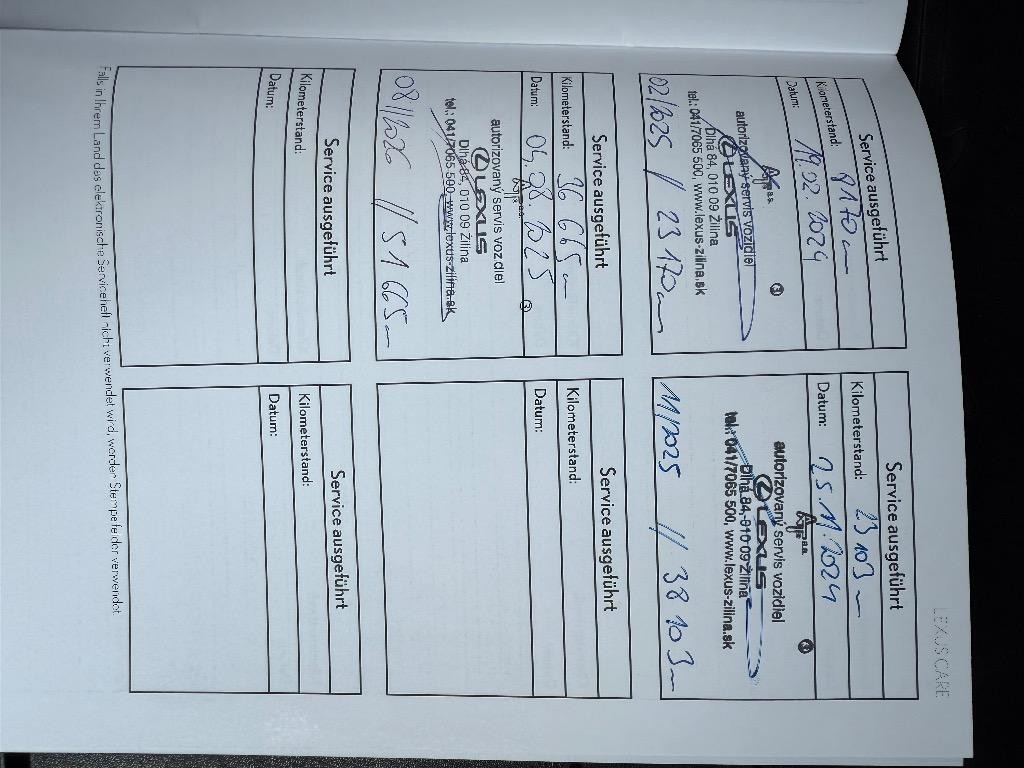 LEXUS CARE
Service ausgeführt
Kilometerstand: 8170 km
Datum: 19.02.2024
autorizovaný servis vozidiel
LEXUS
Dlhá 84, 010 09 Žilina
tel.: 041/7065 500, www.lexus-zilina.sk
02/2025 // 23 170 km
Service ausgeführt
Kilometerstand: 23 103
Datum: 25.11.2024
autorizovaný servis vozidiel
LEXUS
Dlhá 84, 010 09 Žilina
tel.: 041/7065 500, www.lexus-zilina.sk
11/2025 // 38 103
Service ausgeführt
Kilometerstand: 36 665
Datum: 04.08.2025
autorizovaný servis vozidiel
LEXUS
Dlhá 84, 010 09 Žilina
tel.: 041/7065 500, www.lexus-zilina.sk
08/2026 // 51 665
Service ausgeführt
Kilometerstand:
Datum:
Service ausgeführt
Kilometerstand:
Datum:
Service ausgeführt
Kilometerstand:
Datum:
Falls in Ihrem Land das elektronische Serviceheft nicht verwendet wird, werden Stempelfelder verwendet